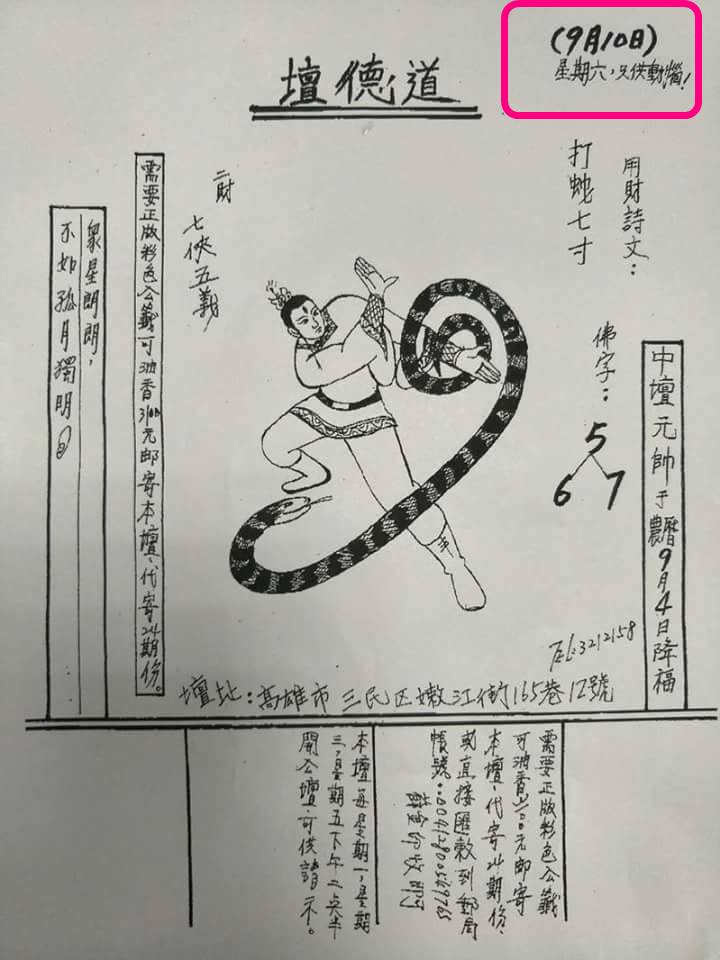 (9月10日)
星期六,只供動惱!
道德壇
用財詩文:
打蛇七寸
佛字:
5
6 7
中壇元帥于農曆9月4日降福
二財
七俠五義
需要正版彩色公籤可油香3100元郵寄本壇、代寄24期份。
眾星朗朗,
不如孤月獨明
TEL:3212158
壇址:高雄市三民区嫩江街165巷12號
需要正版彩色公籤
可油香3100元郵寄
本壇、代寄24期份、
或直接匯款到郵局
帳號:
本壇每星期一,星期
三,星期五下午二点半
開公壇,可供請示。